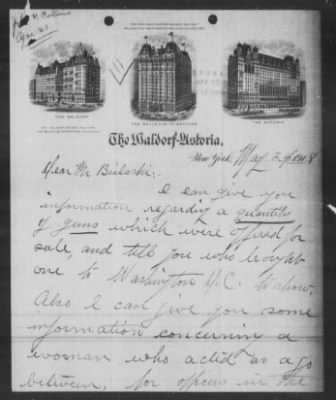 THE WALDORF
THE BELLEVUE-STRATFORD
THE ASTORIA
The Waldorf-Astoria,
New York. May
Dear Mr Bielaski,-
I can give you
information regarding a quantity
of guns which were offered for
sale, and tell you who brought
one to Washington D.C. to show.
Also I can give you some
information concerning a
woman who acted as a go
between, for officers in the